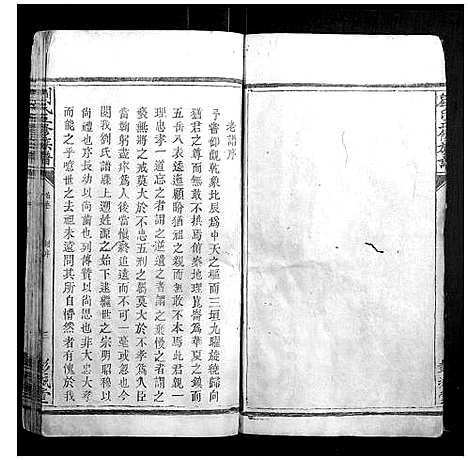 老譜序
予嘗仰觀乾象北辰爲中天之樞而三垣九曜旋繞歸向
猶君之尊而無敢不拱焉俯察地理崑崙爲華夏之鎮而
五岳八表逶迤顧盼猶祖之親而無敢不本焉此君親一
理忠孝一道忘之者謂之逆遺之者謂之乘慢之者謂之
褻無將之戒莫大於不忠五刑之屬莫大於不孝爲人臣
當鞠躬盡瘁爲人後當慎終追遠而不可一毫或忽也今
閱我劉氏譜牒上溯姓源下逮繼世之宗明昭穆以
尚禮也序長幼以尚齒也列傳贊以尚思也非大忠蓋
而能之乎噫世之去祖未遠問其所自懵然者有愧於我
彭城堂